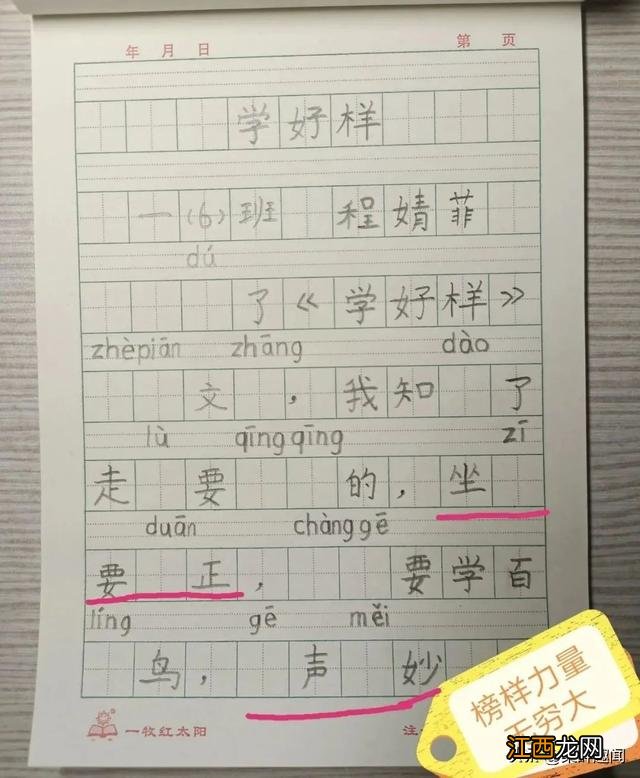 年 月 日 第 页
学好样
一(6)班 程婧菲
dú
了《学好样》
zhèpiān zhāng dào
文，我知 了
lù qīngqīng zī
走 要 的，坐
duān chànggē
要 正， 要学百
líng gē měi
鸟， 声 妙
一牧红太阳 注
榜样力量
无穷大
江西龙网